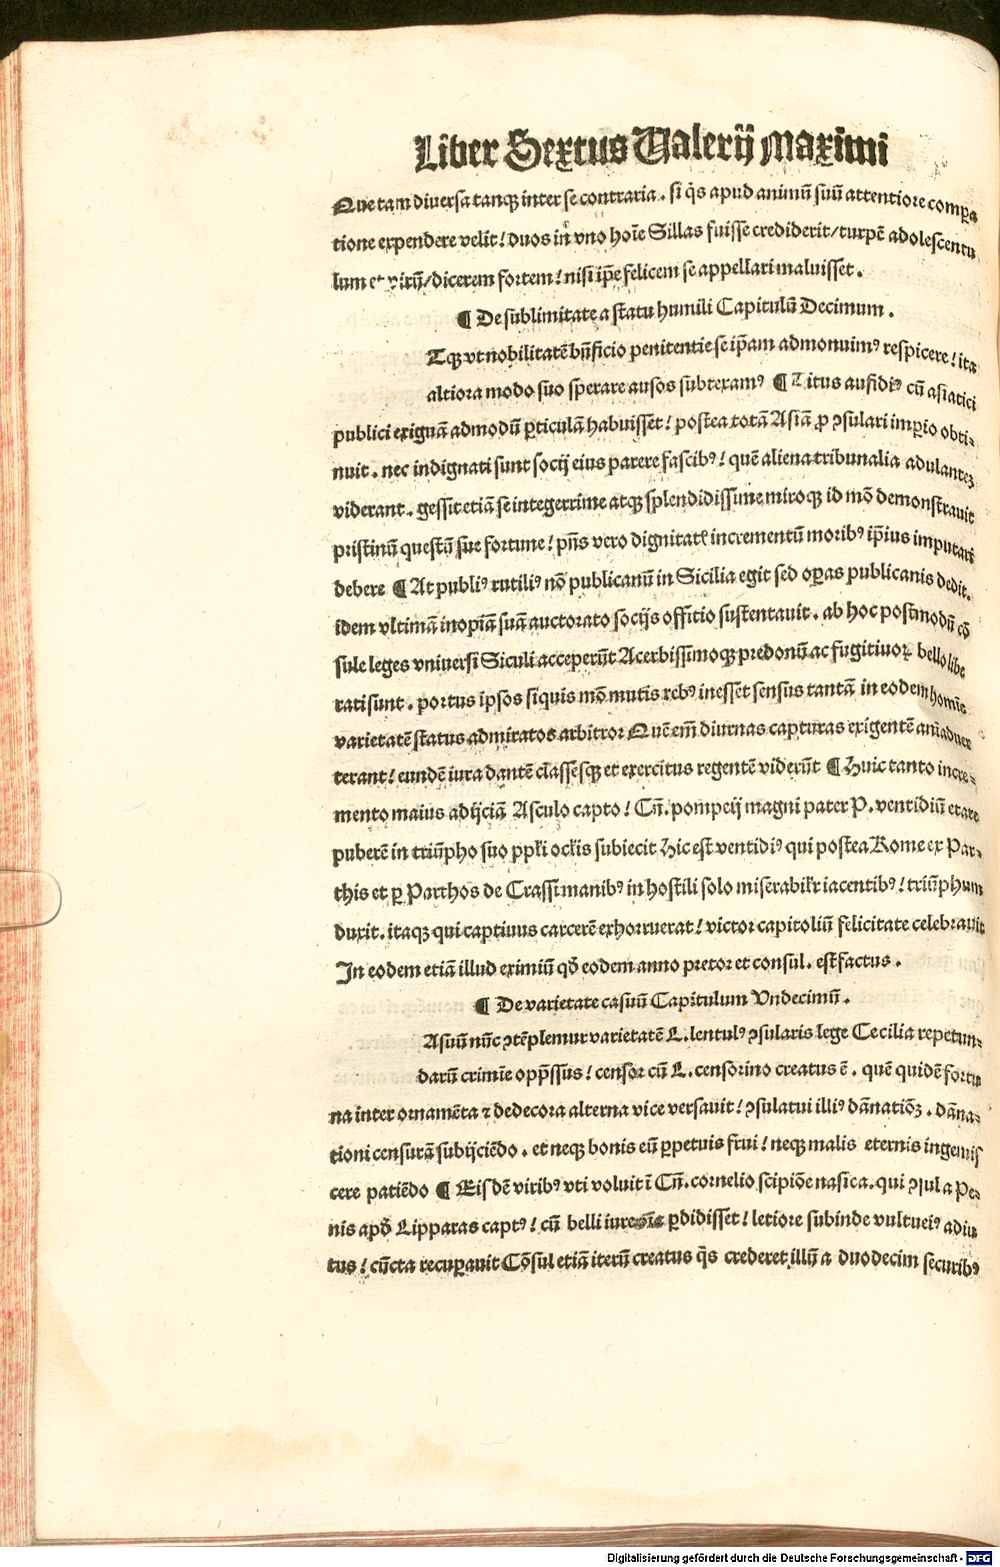 Liber Sextus Valerij Maximi
Que tam diuersa tanqꝫ inter se contraria . si q̃s apud animũ suũ attentiore compa
tione expendere velit! duos in vno hoĩe Sillas fuisse crediderit/turpẽ adolescentu
lum et virũ/dicerem fortem! nisi ip̃e felicem se appellari maluisset .
¶ De sublimitate a statu humili Capitulũ Decimum .
Tqꝫ vt nobilitatẽ bñficio penitentie se ip̃am admonuimꝰ respicere! ita
altiora modo suo sperare ausos subtexamꝰ ¶ Titus aufidiꝰ cũ asiatici
publici exiguã admodũ ꝑticulã habuisset! postea totã Asiã ꝓ ꝯsulari imꝑio obti-
nuit . nec indignati sunt socij eius parere fascibꝰ! quẽ aliena tribunalia adulantez
viderant . gessit etiã se integerrime atqꝫ splendidissime miroqꝫ id mõ demonstrauit
pristinũ questũ sue fortune! pñs vero dignitatꝭ incrementũ moribꝰ ip̃ius imputari
debere ¶ At publiꝰ rutiliꝰ nõ publicanũ in Sicilia egit sed oꝑas publicanis dedit.
idem vltimã inopiã suã auctorato socijs offitio sustentauit . ab hoc postmodũ cõ
sule leges vniuersi Siculi acceperũt Acerbissimoqꝫ predonũ ac fugitiuoꝝ bello libe
rati sunt . portus ipsos si quis mõ mutis rebꝰ inesset sensus tantã in eodem homĩe
varietatẽ status admiratos arbitror Quẽ em̃ diurnas capturas exigentẽ aniaduer
terant! eundẽ iura dantẽ classesqꝫ et exercitus regentẽ viderũt ¶ Huic tanto incre-
mento maius adijciã Asculo capto! Cñ. pompeij magni pater P. ventidiũ etate
puberẽ in triũpho suo ppłi ocłis subiecit Hic est ventidiꝰ qui postea Rome ex Par-
this et ꝑ Parthos de Crassi manibꝰ in hostili solo miserabilr̃ iacentibꝰ! triũphum
duxit. itaqꝫ qui captiuus carcerẽ exhorruerat! victor capitoliũ felicitate celebrauit
In eodem etiã illud eximiũ qđ eodem anno pretor et consul . est factus .
¶ De varietate casuũ Capitulum Vndecimũ .
Asuũ nũc ꝯtẽplemur varietatẽ L. lentulꝰ ꝯsularis lege Cecilia repetun-
darũ crimĩe opp̃ssus! censor cũ L. censorino creatus ẽ . quẽ quidẽ fortu
na inter ornamẽta ⁊ dedecora alterna vice versauit! ꝯsulatui illiꝰ dãnatiõꝫ . dãna-
tioni censurã subijciẽdo . et neqꝫ bonis eũ ꝑpetuis frui! neqꝫ malis eternis ingemis
cere patiẽdo ¶ Eisdẽ viribꝰ vti voluit ĩ Cñ. cornelio scipiõe nasica. qui ꝯsul a Pe-
nis apđ Lipparas captꝰ! cũ belli iure ꝑdidisset! letiore subinde vultu eiꝰ adiu
tus! cũcta recuꝑauit Cõsul etiã iterũ creatus q̃s crederet illũ a duodecim securibꝰ
Digitalisierung gefördert durch die Deutsche Forschungsgemeinschaft - DFG